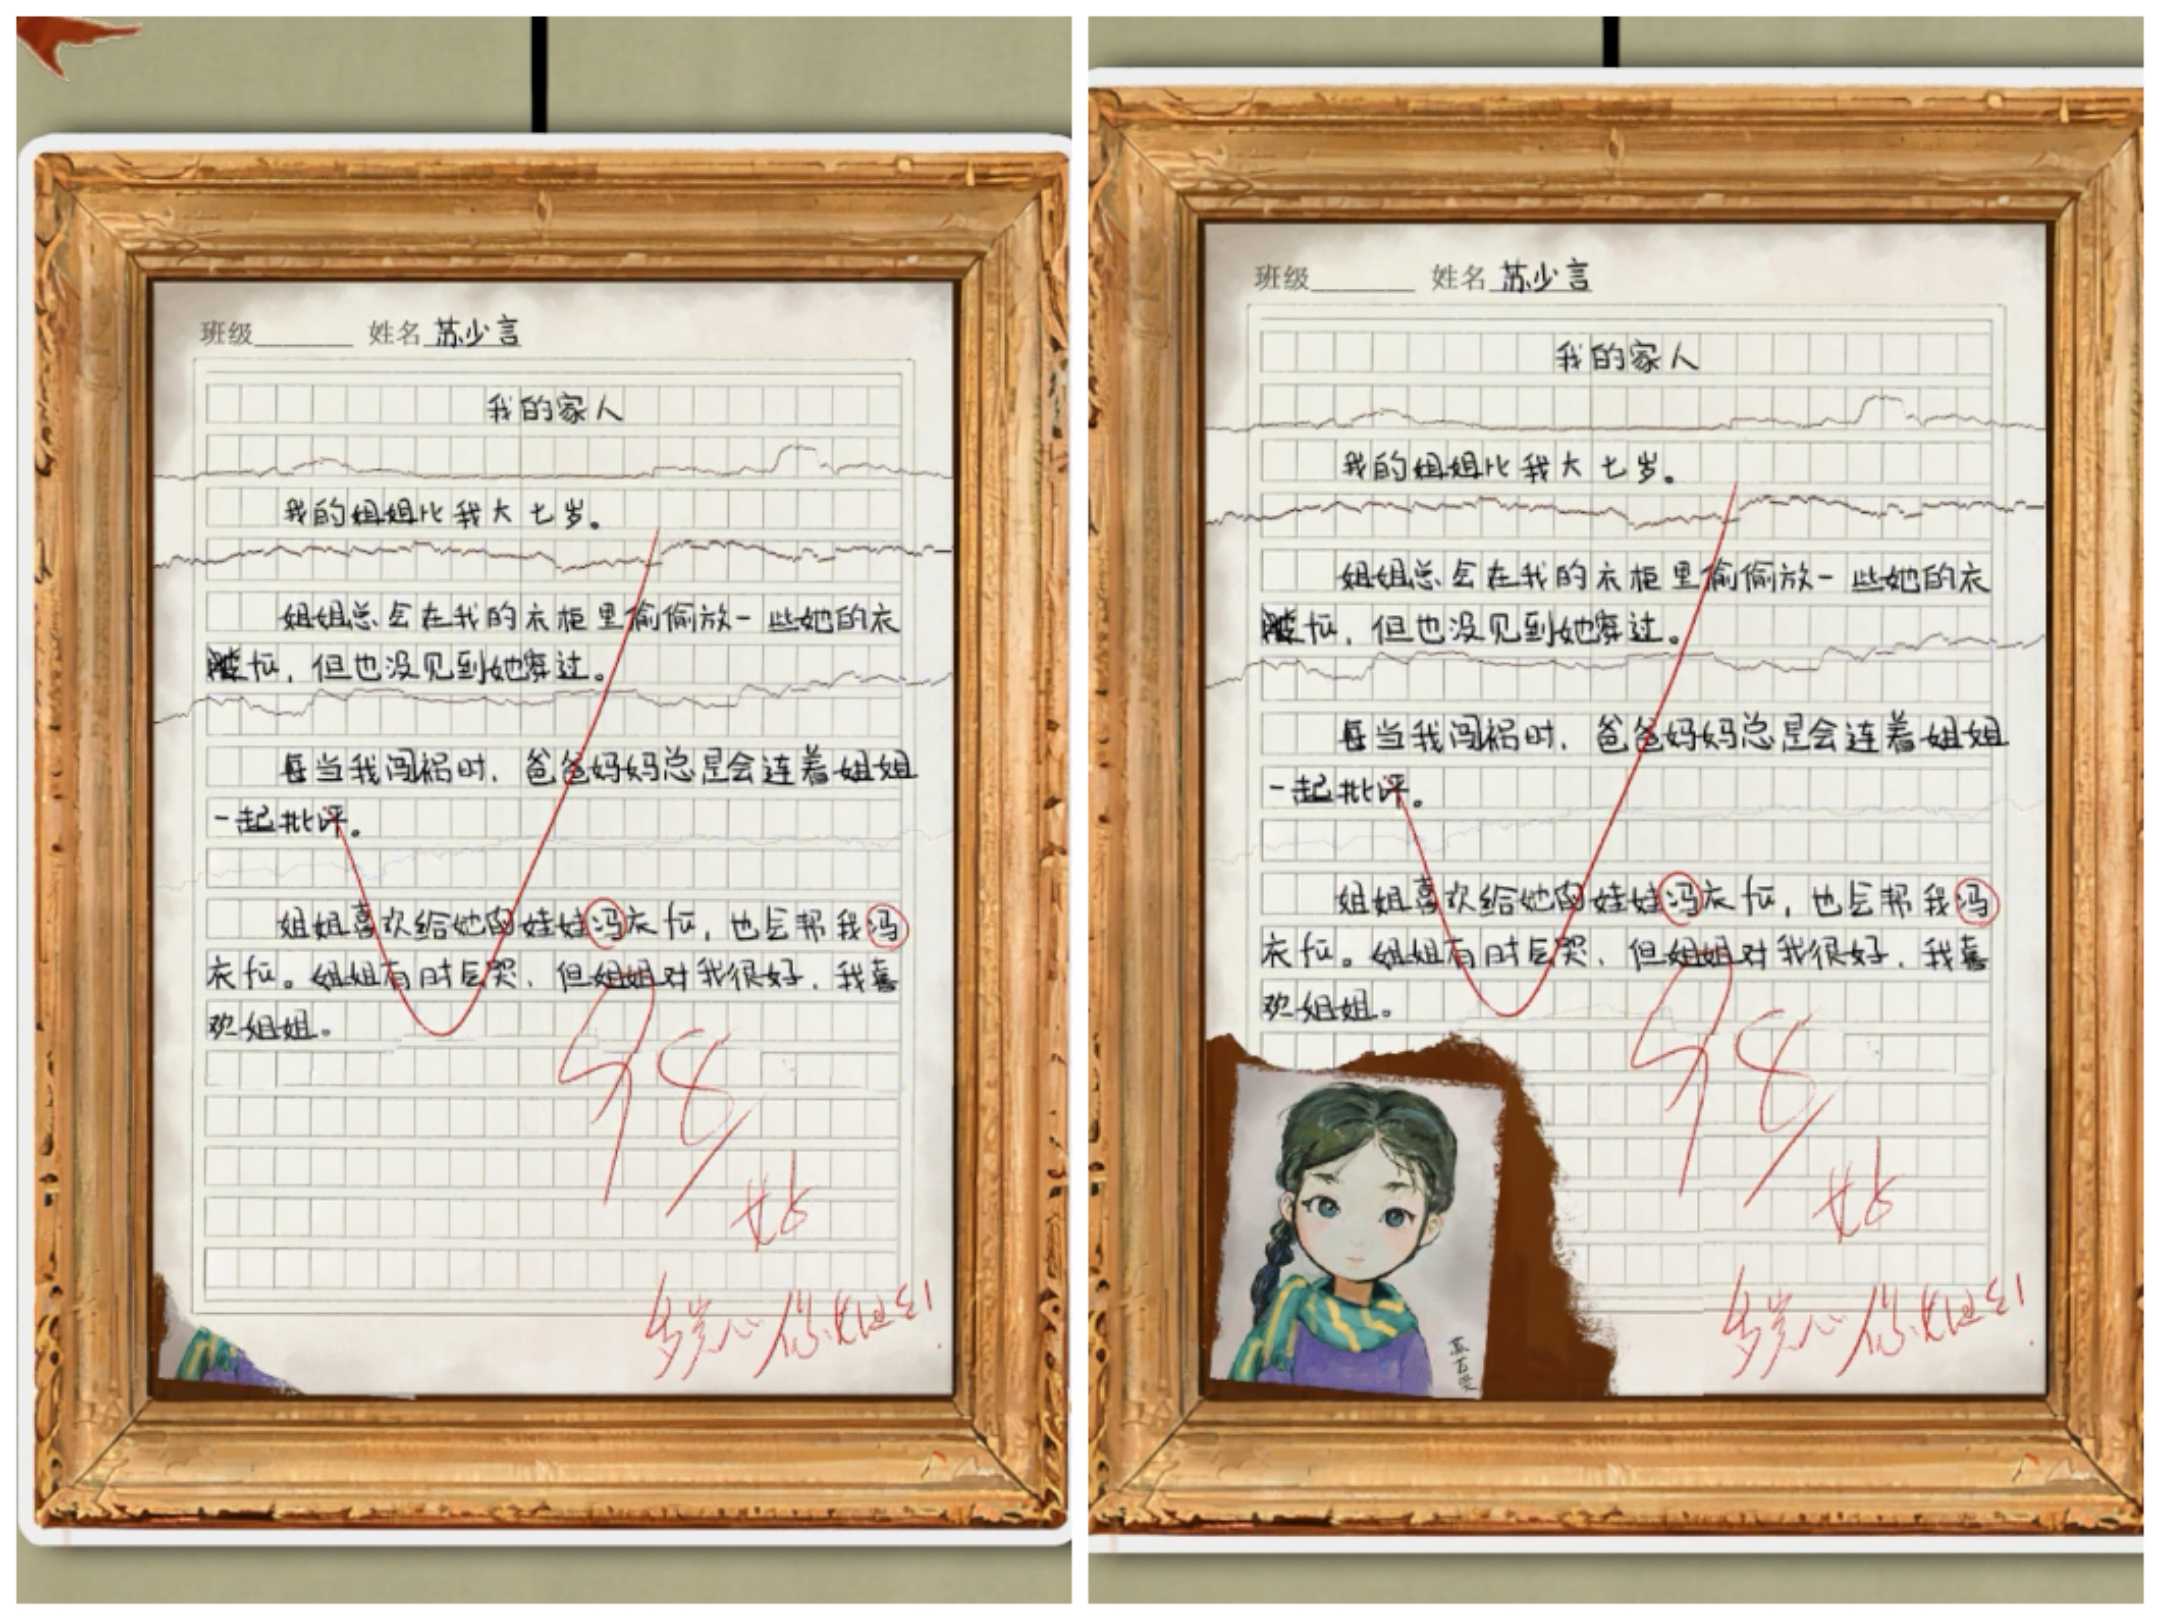 班级 姓名 苏少言
我的家人
我的姐姐比我大七岁。
姐姐总会在我的衣柜里偷偷放一些她的衣
服，但也没见到她穿过。
每当我闯祸时，爸爸妈妈总是会连着姐姐
一起批评。
姐姐喜欢给她的娃娃冯衣服，也会帮我冯
衣服。姐姐有时会哭，但姐姐对我很好，我喜
欢姐姐。
98
班级 姓名 苏少言
我的家人
我的姐姐比我大七岁。
姐姐总会在我的衣柜里偷偷放一些她的衣
服，但也没见到她穿过。
每当我闯祸时，爸爸妈妈总是会连着姐姐
一起批评。
姐姐喜欢给她的娃娃冯衣服，也会帮我冯
衣服。姐姐有时会哭，但姐姐对我很好，我喜
欢姐姐。
98